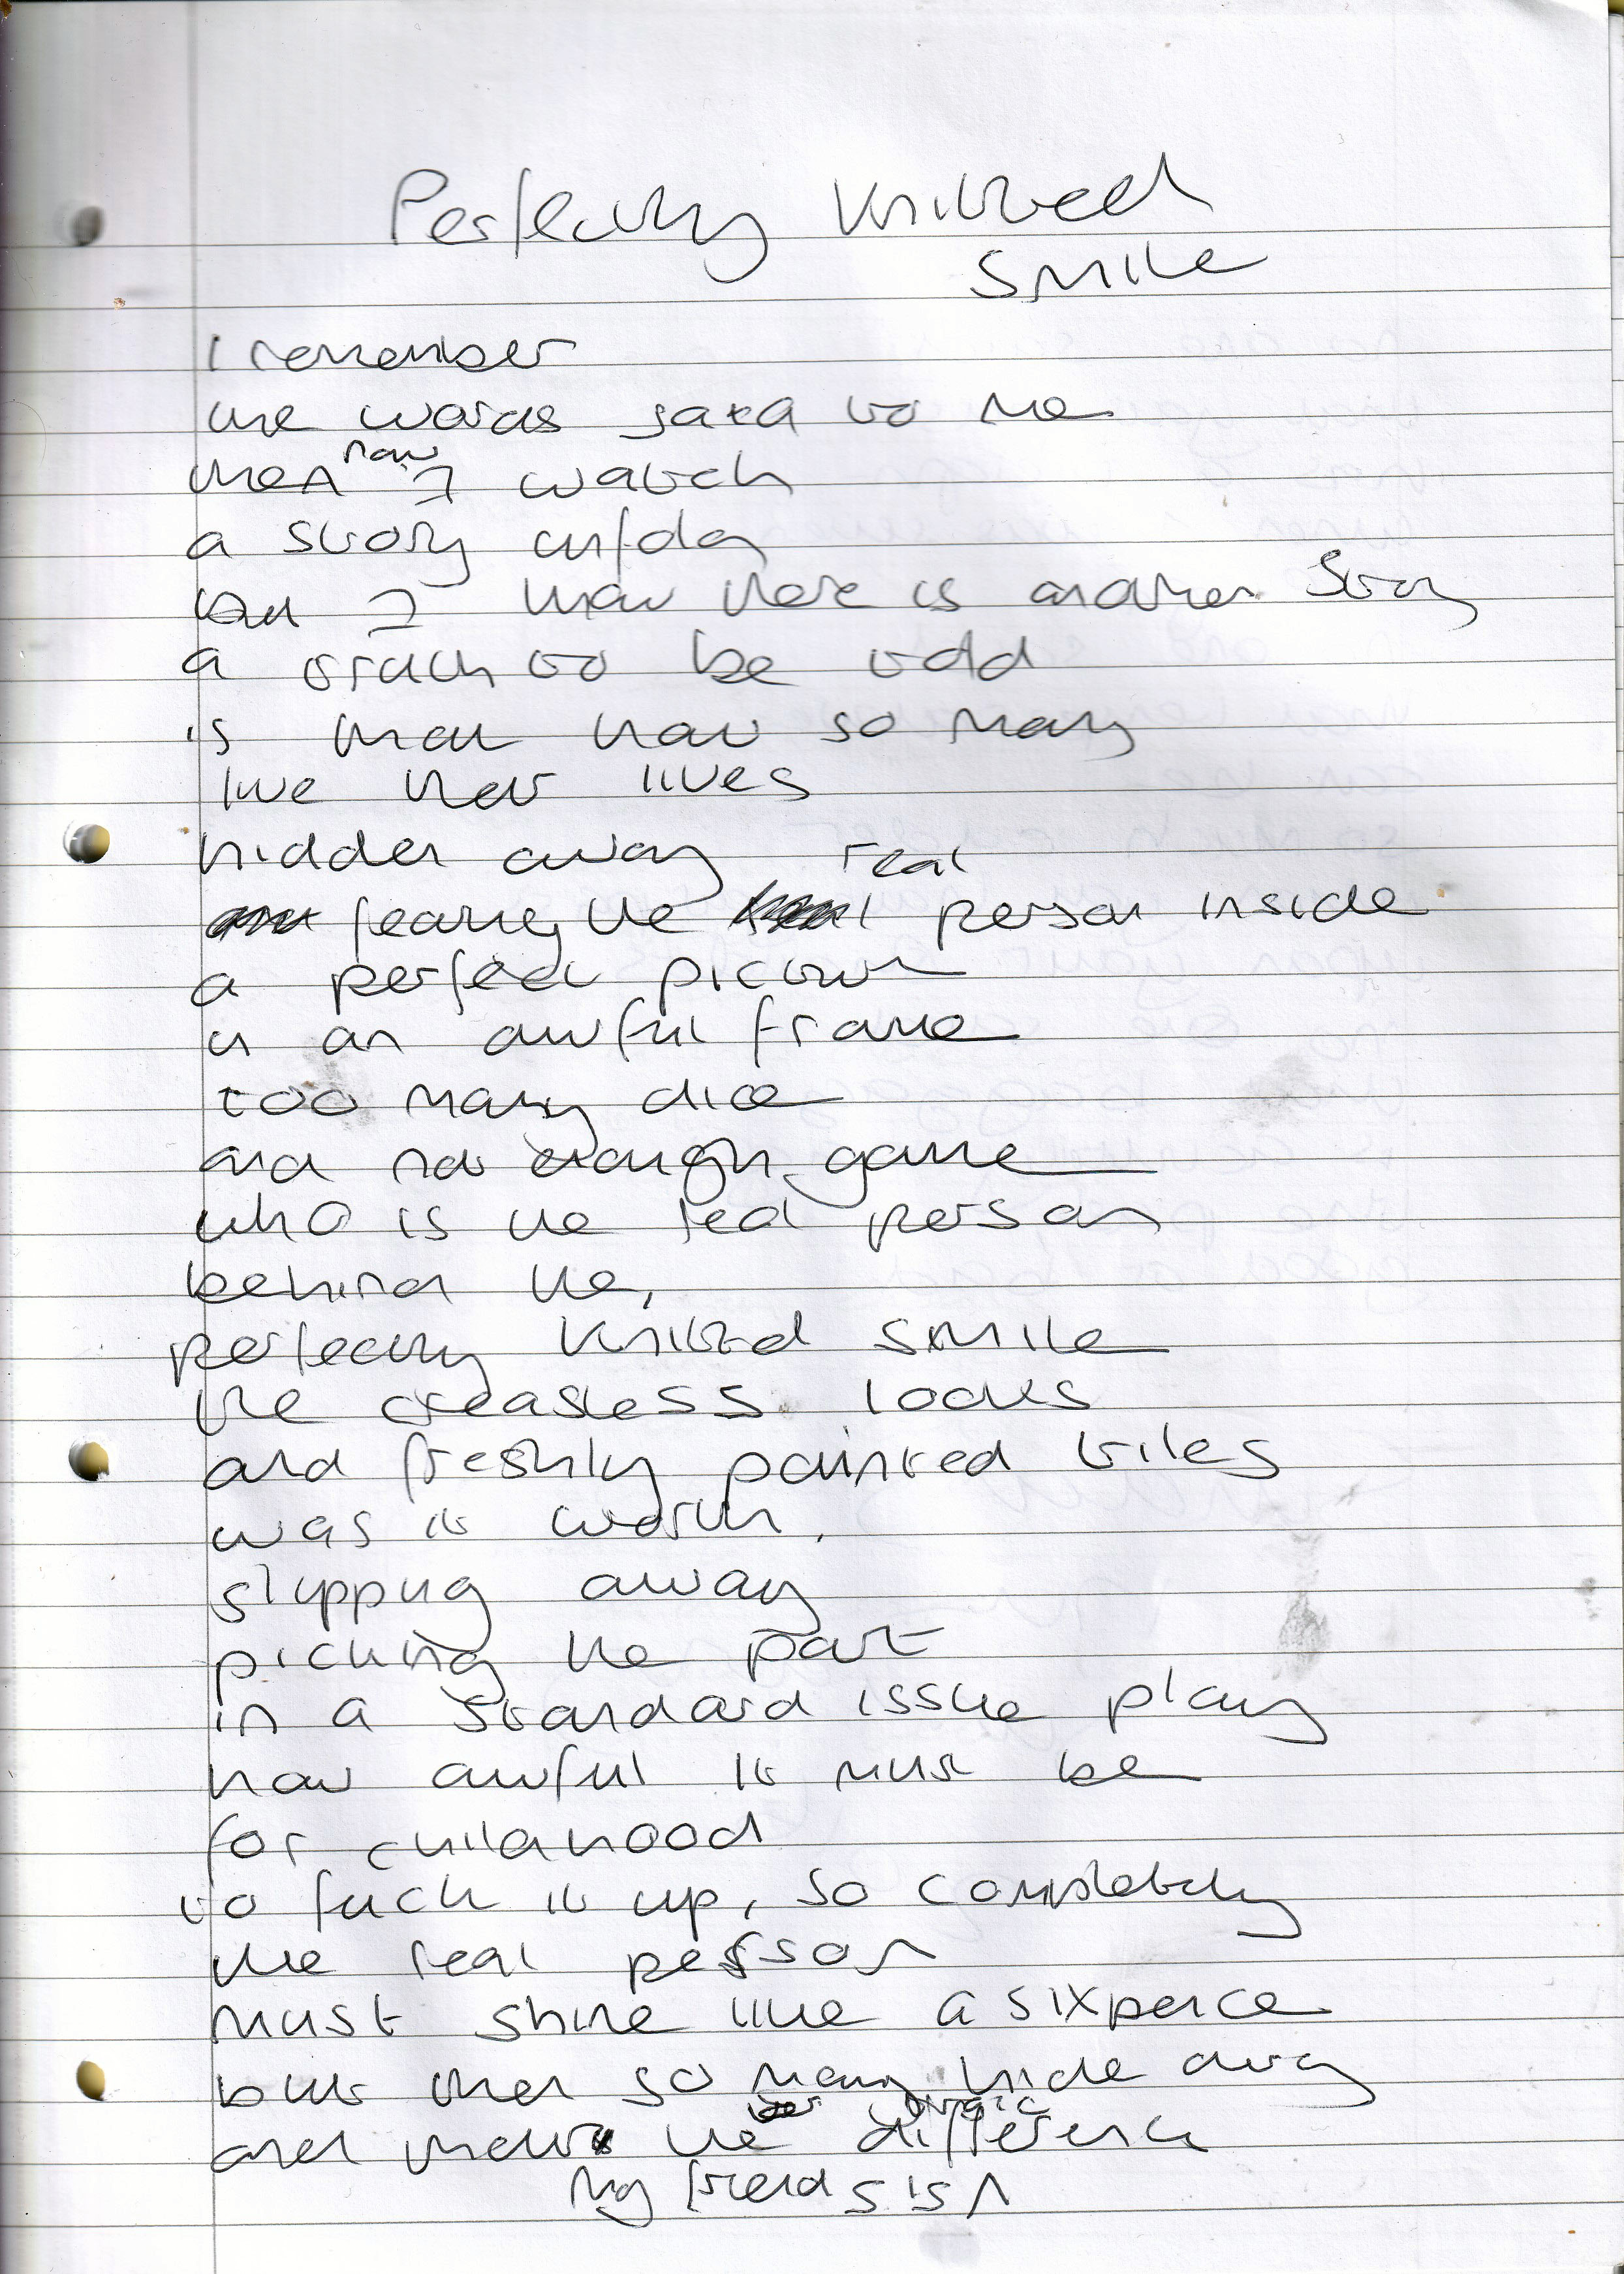 Perfectly Knitted
Smile
I remember
the words said to me
then now I watch
a story unfold
but I know there is another story
a truth to be told
is that how so many
live their lives
hidden away
fearing the real person inside
a perfect picture
in an awful frame
too many dice
and not enough game
who is the real person
behind the,
perfectly knitted smile
the creasless looks
and freshly painted tiles
was it worth,
slipping away
picking the part
in a standard issue play
how awful it must be
for childhood
to fuck it up, so completely
the real person
must shine like a sixpence
but then so many hide away
and that the tragic difference
My friend s is n